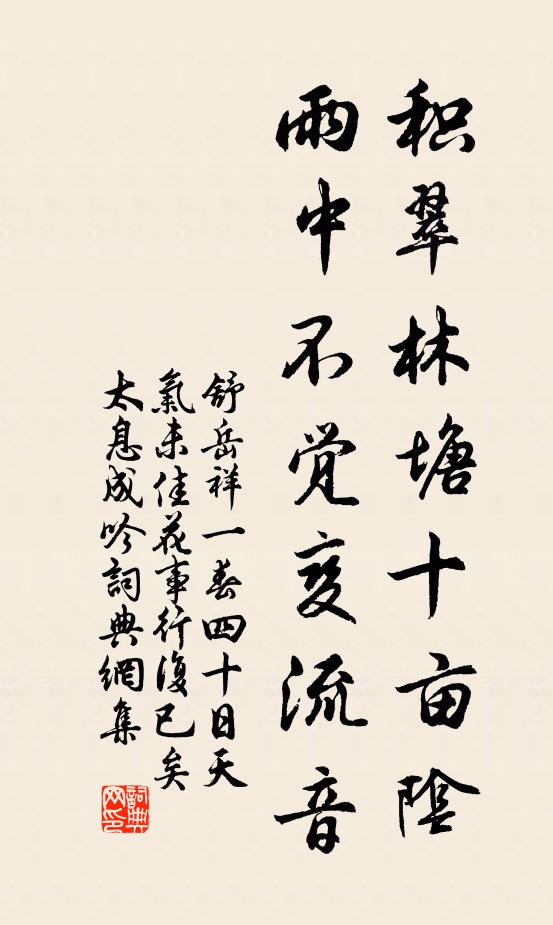 积翠林塘十亩陰
雨中不觉变流音
舒岳祥一春四十日天
氣未佳花事行復已矣
太息成吟詞典網集
詞典网印